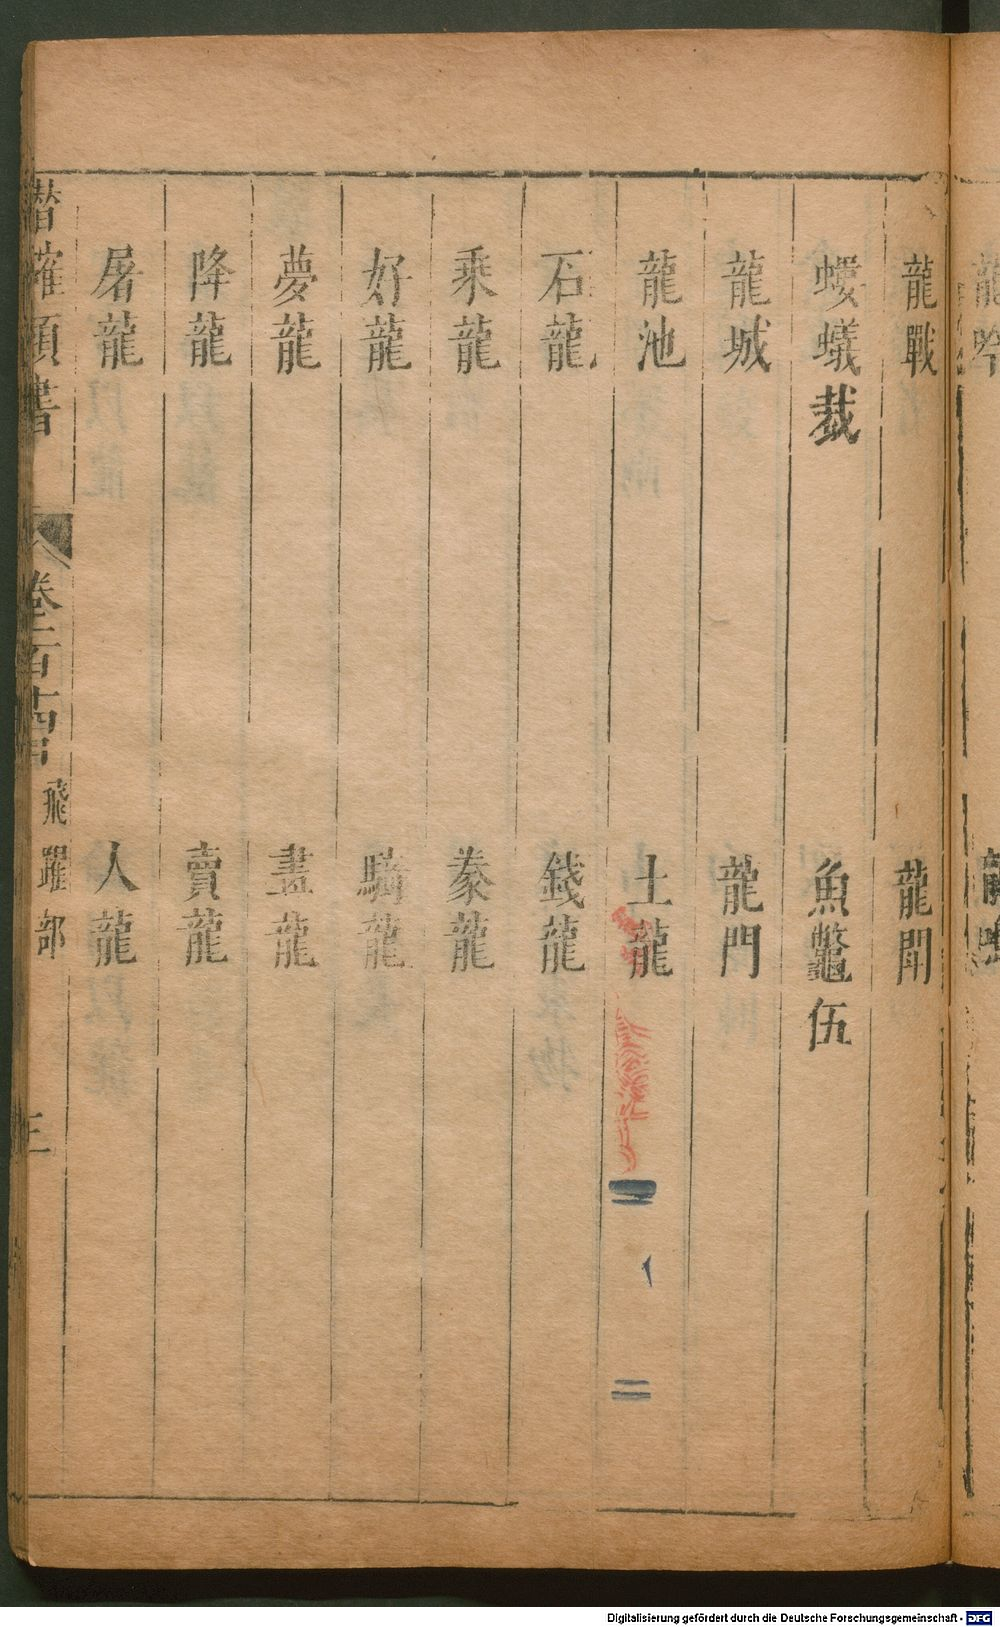 龍戰　龍鬪
螻蟻裁　魚鼈伍
龍城　龍門
龍池　土龍
石龍　錢龍
乘龍　豢龍
好龍　騎龍
夢龍　畫龍
降龍　賣龍
屠龍　人龍
潛確類書　卷一百十四　飛躍部　三
Digitalisierung gefördert durch die Deutsche Forschungsgemeinschaft - DFG